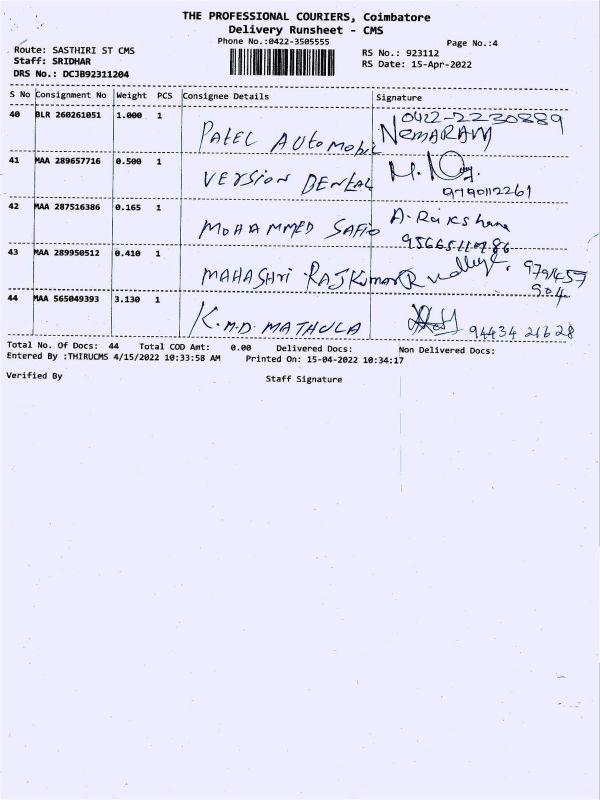 THE PROFESSIONAL COURIERS, Coimbatore
Delivery Runsheet - CMS
Phone No.:0422-3505555
Page No.:4
Route: SASTHIRI ST CMS
RS No.: 923112
Staff: SRIDHAR
RS Date: 15-Apr-2022
DRS No.: DCJB92311204
S No Consignment No Weight PCS Consignee Details Signature
40 BLR 260261051 1.000 1 PATEL AUtomobile 0422-2230889
NEMARAM
41 MAA 289657716 0.500 1 VERSION DENtAL
9790112261
42 MAA 287516386 0.165 1 MOHAMMED SAFIO A. Rakshana
43 MAA 289950512 0.410 1 MAHASHRI RAJKUMAR
44 MAA 565049393 3.130 1 K.M.D. MATHULA 94434 21628
Total No. Of Docs: 44 Total COD Amt: 0.00 Delivered Docs: Non Delivered Docs:
Entered By :THIRUCMS 4/15/2022 10:33:58 AM Printed On: 15-04-2022 10:34:17
Verified By
Staff Signature